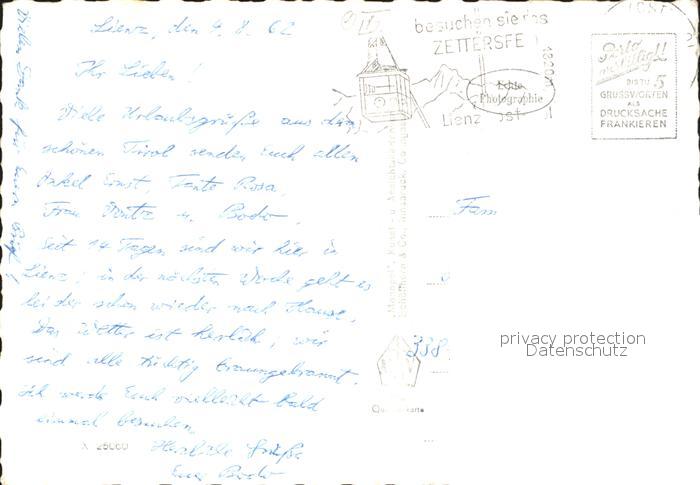 Lienz, den 4. 8. 62
Ihr Lieben!
Viele Urlaubsgrüße aus dem
schönen Tirol senden Euch allen
Onkel Ernst, Tante Rosa,
Frau u. Bodo.
Seit 14 Tagen sind wir hier in
Lienz; in der nächsten Woche geht es
leider schon wieder nach Hause.
Das Wetter ist herrlich, wir
sind alle tüchtig braungebrannt.
Ich werde Euch vielleicht bald
einmal besuchen.
Herzliche Grüße
Euer Bodo
Vielen Dank für Euren Brief!
besuchen sie das
ZETTERSFE
1820m
Lienz
Echte
Photographie
Porto
BIS ZU 5
GRUSSWORTEN
ALS
DRUCKSACHE
FRANKIEREN
Fam
338
X 25060
privacy protection
Datenschutz